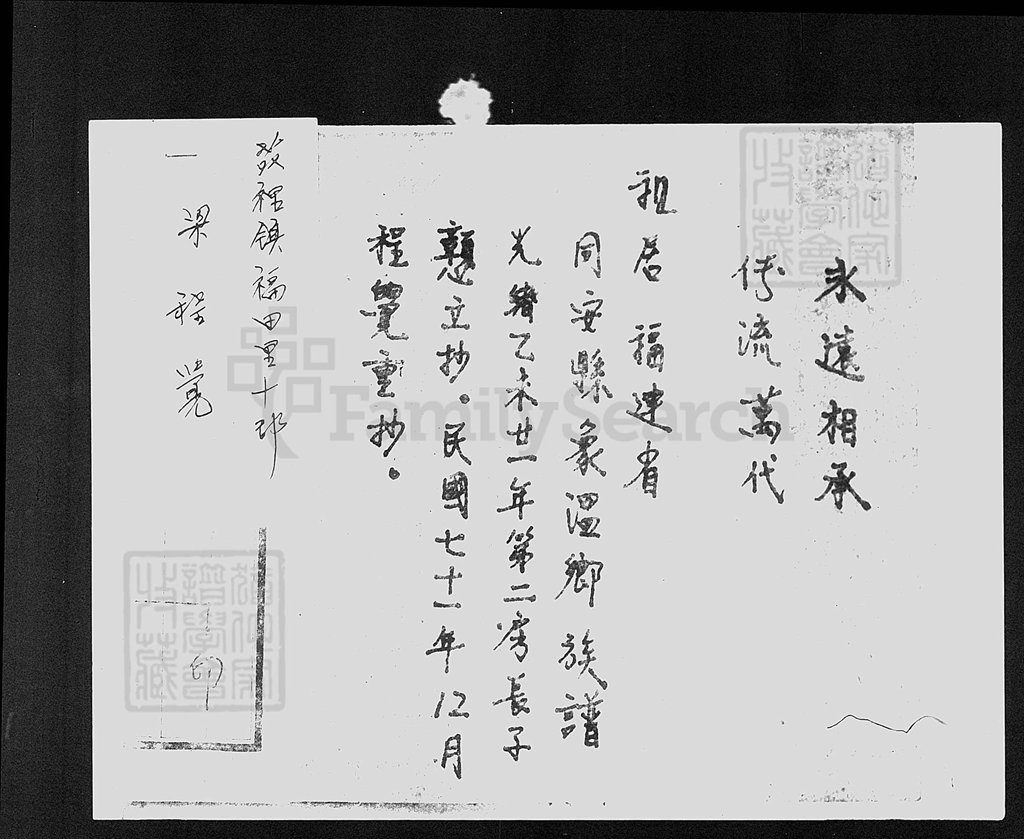 永遠相承
传流萬代
祖居 福建省
同安縣象溫鄉 族譜
光緒乙未廿一年第二房長子
立抄。民國七十一年12月
程覺重抄。
裡鎮福田里十
一 梁 程 覺
印
FamilySearch